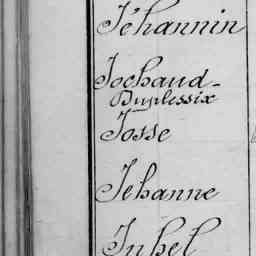 Jéhannin
Jochaud-
Duplessix
Josse
Jehanne
Juhel